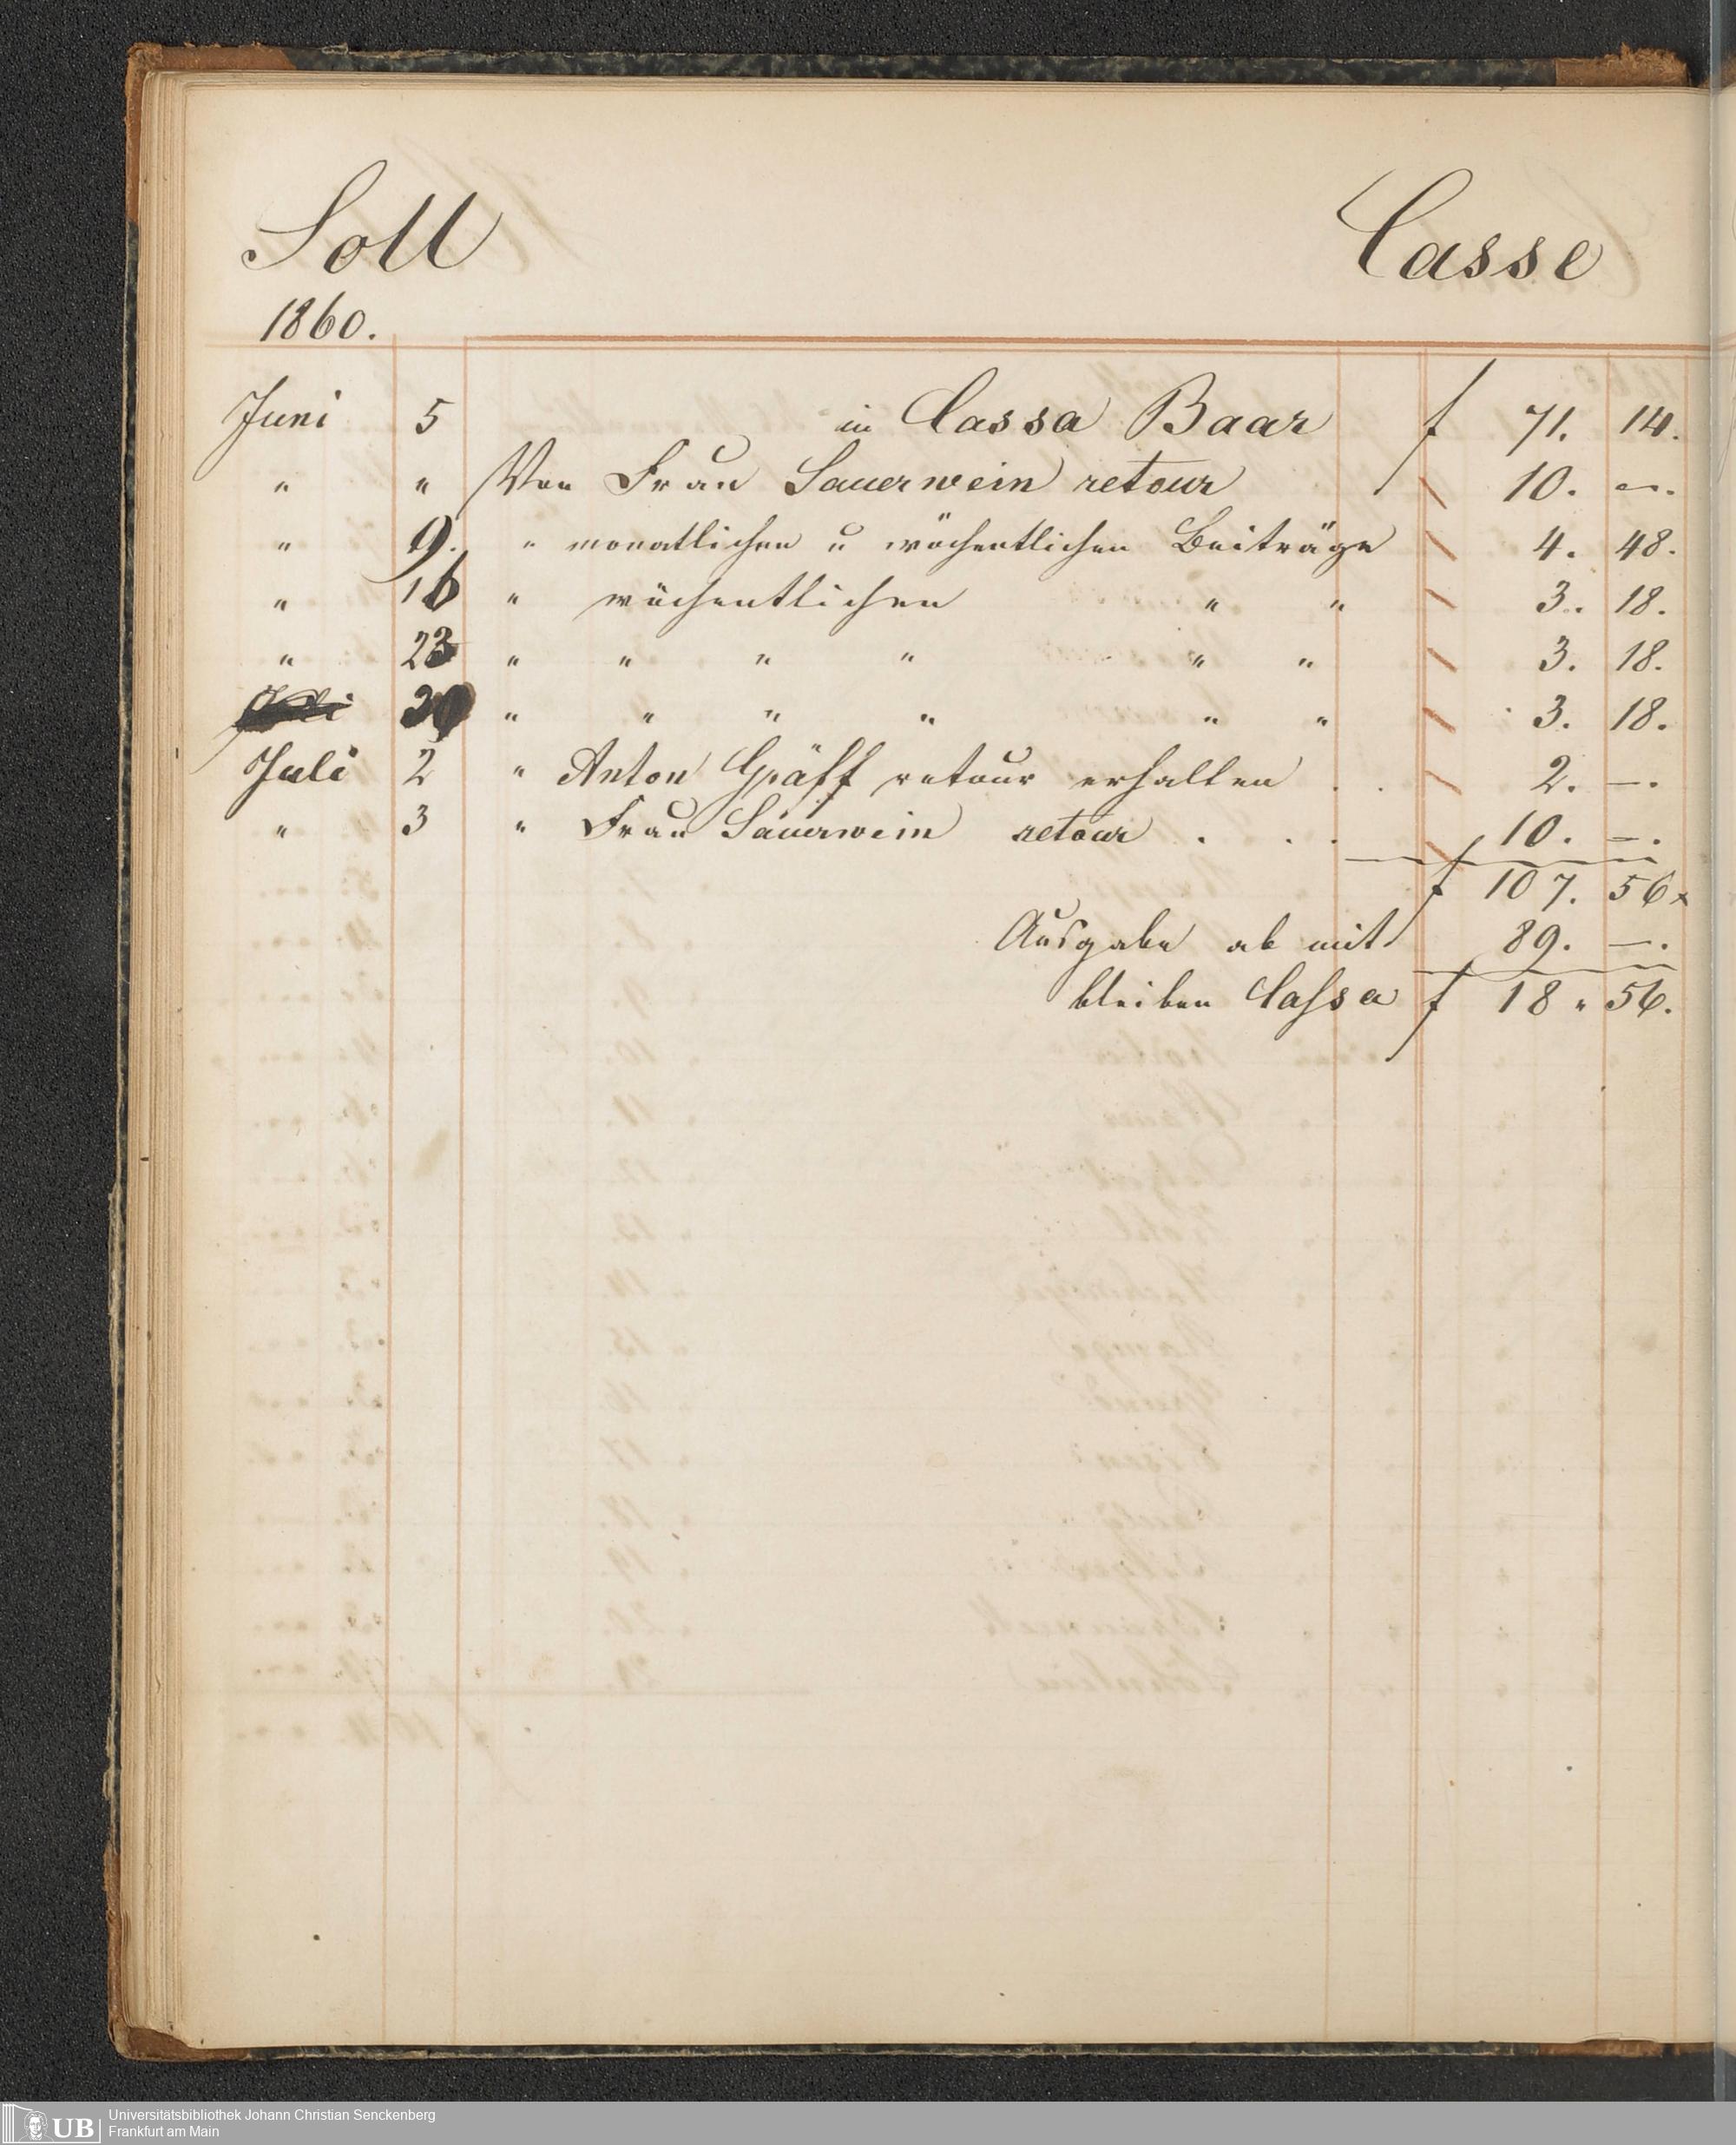 Soll Casse
1860.
Juni 5 in Cassa Baar f 71. 14.
" " Von Frau Sauerwein retour 10. —.
" 9. " monatlichen u wöchentlichen Beiträge 4. 48.
" 16 " wöchentlichen " " 3. 18.
" 23 " " " " " " 3. 18.
30 " " " " " " 3. 18.
Juli 2 " Anton Gräff retour erhalten . . 2. —.
" 3 " Frau Sauerwein retour . . . 10. —.
f 107. 56
Ausgabe ab mit 89. —.
bleiben Cassa f 18 " 56.
UB Universitätsbibliothek Johann Christian Senckenberg
Frankfurt am Main